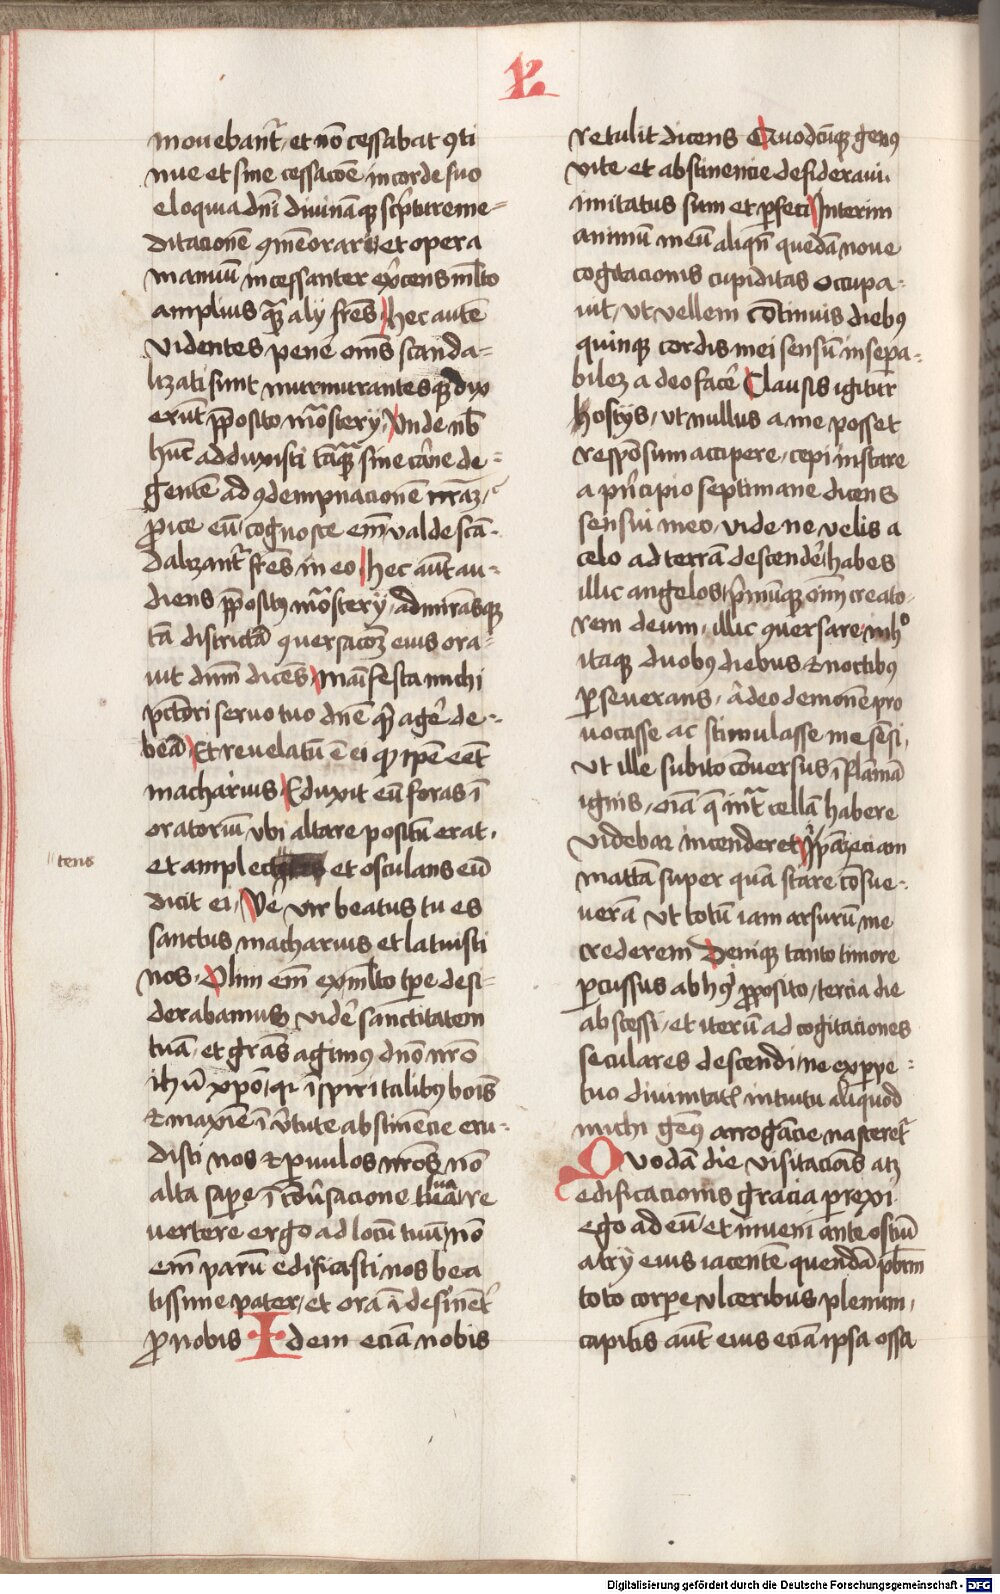 mouebant᷑, et nō cessabat ꝯti
nue et sine cessacōe in corde suo
eloquia dn̄i diuinā qꝫ scͥpture me=
ditacionē ꝯmēorari et opera
manuū incessanter ex̄cens ml̄to
amplius qᷓꝫ alij fr̄es hec autē
videntes pene om̄s scanda=
lizati sunt murmurantes qꝫ dix
erūt p̄posito mᷓostery, vnde nob̄
hūc adduxisti tāqᷓꝫ sine carne de=
gentē ad ꝯdempnacionē nr̄aꝫ,
ꝓice eū cognosce em̄ valde scā-
dalizant᷑ fr̄es in eo hec aūt au=
diens p̄positꝰ mᷓostery, admirās qꝫ
tā districtā ꝯuersacōꝫ eius ora=
uit dn̄m dicēs, mai᷑festa michi
pctōri seruo tuo dn̄e qͥd agē de=
beā Et reuelatū ē ei qꝫ ip̄e eēt
macharius Eduxit eū foras ī
oratoriū vbi altare positū erat.
et amplec et osculans eū
dicit ei, Vē vir beatus tu es
sanctus macharius et latuisti
nos. Olim em̄ ex ml̄to tp̄e desi=
derabamus vidē sanctitatem
tuā, et grās agimꝰ dn̄o nr̄o
ihū xp̄o, qi ī spiritalibꝰ bois̄
⁊ maxīe ī v̄tute abstinēcie eru-
disti nos ⁊ puulos nr̄os nō
alta sape ī cōūsacione tua re
vertere ergo ad locū tuū, nō
em̄ parū edificasti nos bea
tissime pater, et ora īdesinēt᷑
ꝓ nobis Idem eciā nobis
tens
retulit dicens Quodcūqꝫ genꝰ
vite et abstinencie desideraui.
imitatus sum et ꝑfeci Interim
animū meū aliqn̄ quedā noue
cogitacionis cupiditas occupa-
uit, vt vellem cōtinuis diebꝰ
quinqꝫ cordis mei sensū insepa-
bileꝫ a deo facē Clausis igitur
hostijs, vt nullus a me posset
respōsum accipere, cepi instare
a pͥncipio septimane dicens
sensui meo, vide ne velis a
celo ad terrā descendē, habes
illic angelos, pͥmūqꝫ oīm creato-
rem deum, illic ꝯuersare, in hͦ
itaqꝫ duobꝰ diebus ⁊ noctibꝰ
ꝑseuerans, adeo demonē pro
uocasse ac stimulasse me sēsi,
vt ille subito cōuersus ī flāmā
ignis, oīa q̄ intᷓ cellā habere
videbar incenderet Ip̄aꝫ eciam
mattā super quā stare cōsue-
uerā vt totū iam arsurū me
crederem Deniqꝫ tanto timore
ꝑcussus ab hꝰ ꝓposito, tercia die
abscessi, et iterū ad cogitaciones
seculares descendi, ne ex ꝑpe-
tuo diuinitatꝭ intuitu aliquod
michi genꝰ arrogācie nasceret᷑
Quodā die visitacōis atꝫ
edificacionis gracia ꝑrexi
ego ad eū, et inueni ante ostiū
atrij eius iacentē quendā p̄bt̄m
toto corꝑe vlceribus plenum,
capitis aūt eius eciā ipsa ossa
Digitalisierung gefördert durch die Deutsche Forschungsgemeinschaft - DFG